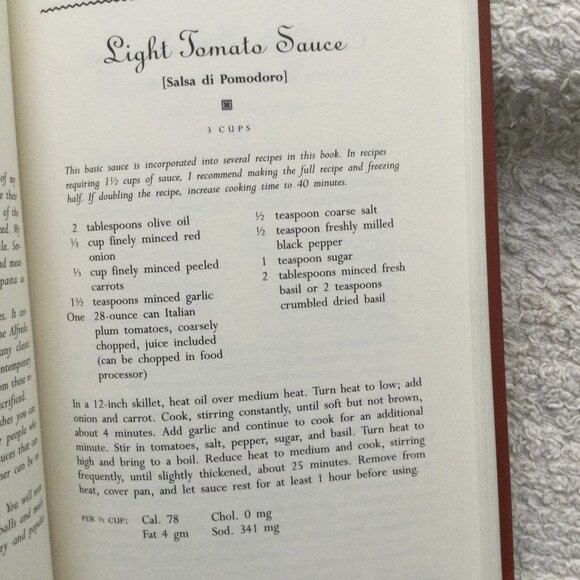 of my
their
of the
ed. My
ile. Ser-
and meat
pasta a
es. It ca-
he Alfredo,
any classic
ontemporary
om these re-
acrificed.
shes you can
people who
uces that can
ner can be on
You will soon
balls and much
ry and popular
Light Tomato Sauce
[Salsa di Pomodoro]
3 CUPS
This basic sauce is incorporated into several recipes in this book. In recipes
requiring 1½ cups of sauce, I recommend making the full recipe and freezing
half. If doubling the recipe, increase cooking time to 40 minutes.
2 tablespoons olive oil
⅓ cup finely minced red
onion
⅓ cup finely minced peeled
carrots
1½ teaspoons minced garlic
One 28-ounce can Italian
plum tomatoes, coarsely
chopped, juice included
(can be chopped in food
processor)
½ teaspoon coarse salt
½ teaspoon freshly milled
black pepper
1 teaspoon sugar
2 tablespoons minced fresh
basil or 2 teaspoons
crumbled dried basil
In a 12-inch skillet, heat oil over medium heat. Turn heat to low; add
onion and carrot. Cook, stirring constantly, until soft but not brown,
about 4 minutes. Add garlic and continue to cook for an additional
minute. Stir in tomatoes, salt, pepper, sugar, and basil. Turn heat to
high and bring to a boil. Reduce heat to medium and cook, stirring
frequently, until slightly thickened, about 25 minutes. Remove from
heat, cover pan, and let sauce rest for at least 1 hour before using.
PER ½ CUP: Cal. 78 Chol. 0 mg
Fat 4 gm Sod. 341 mg